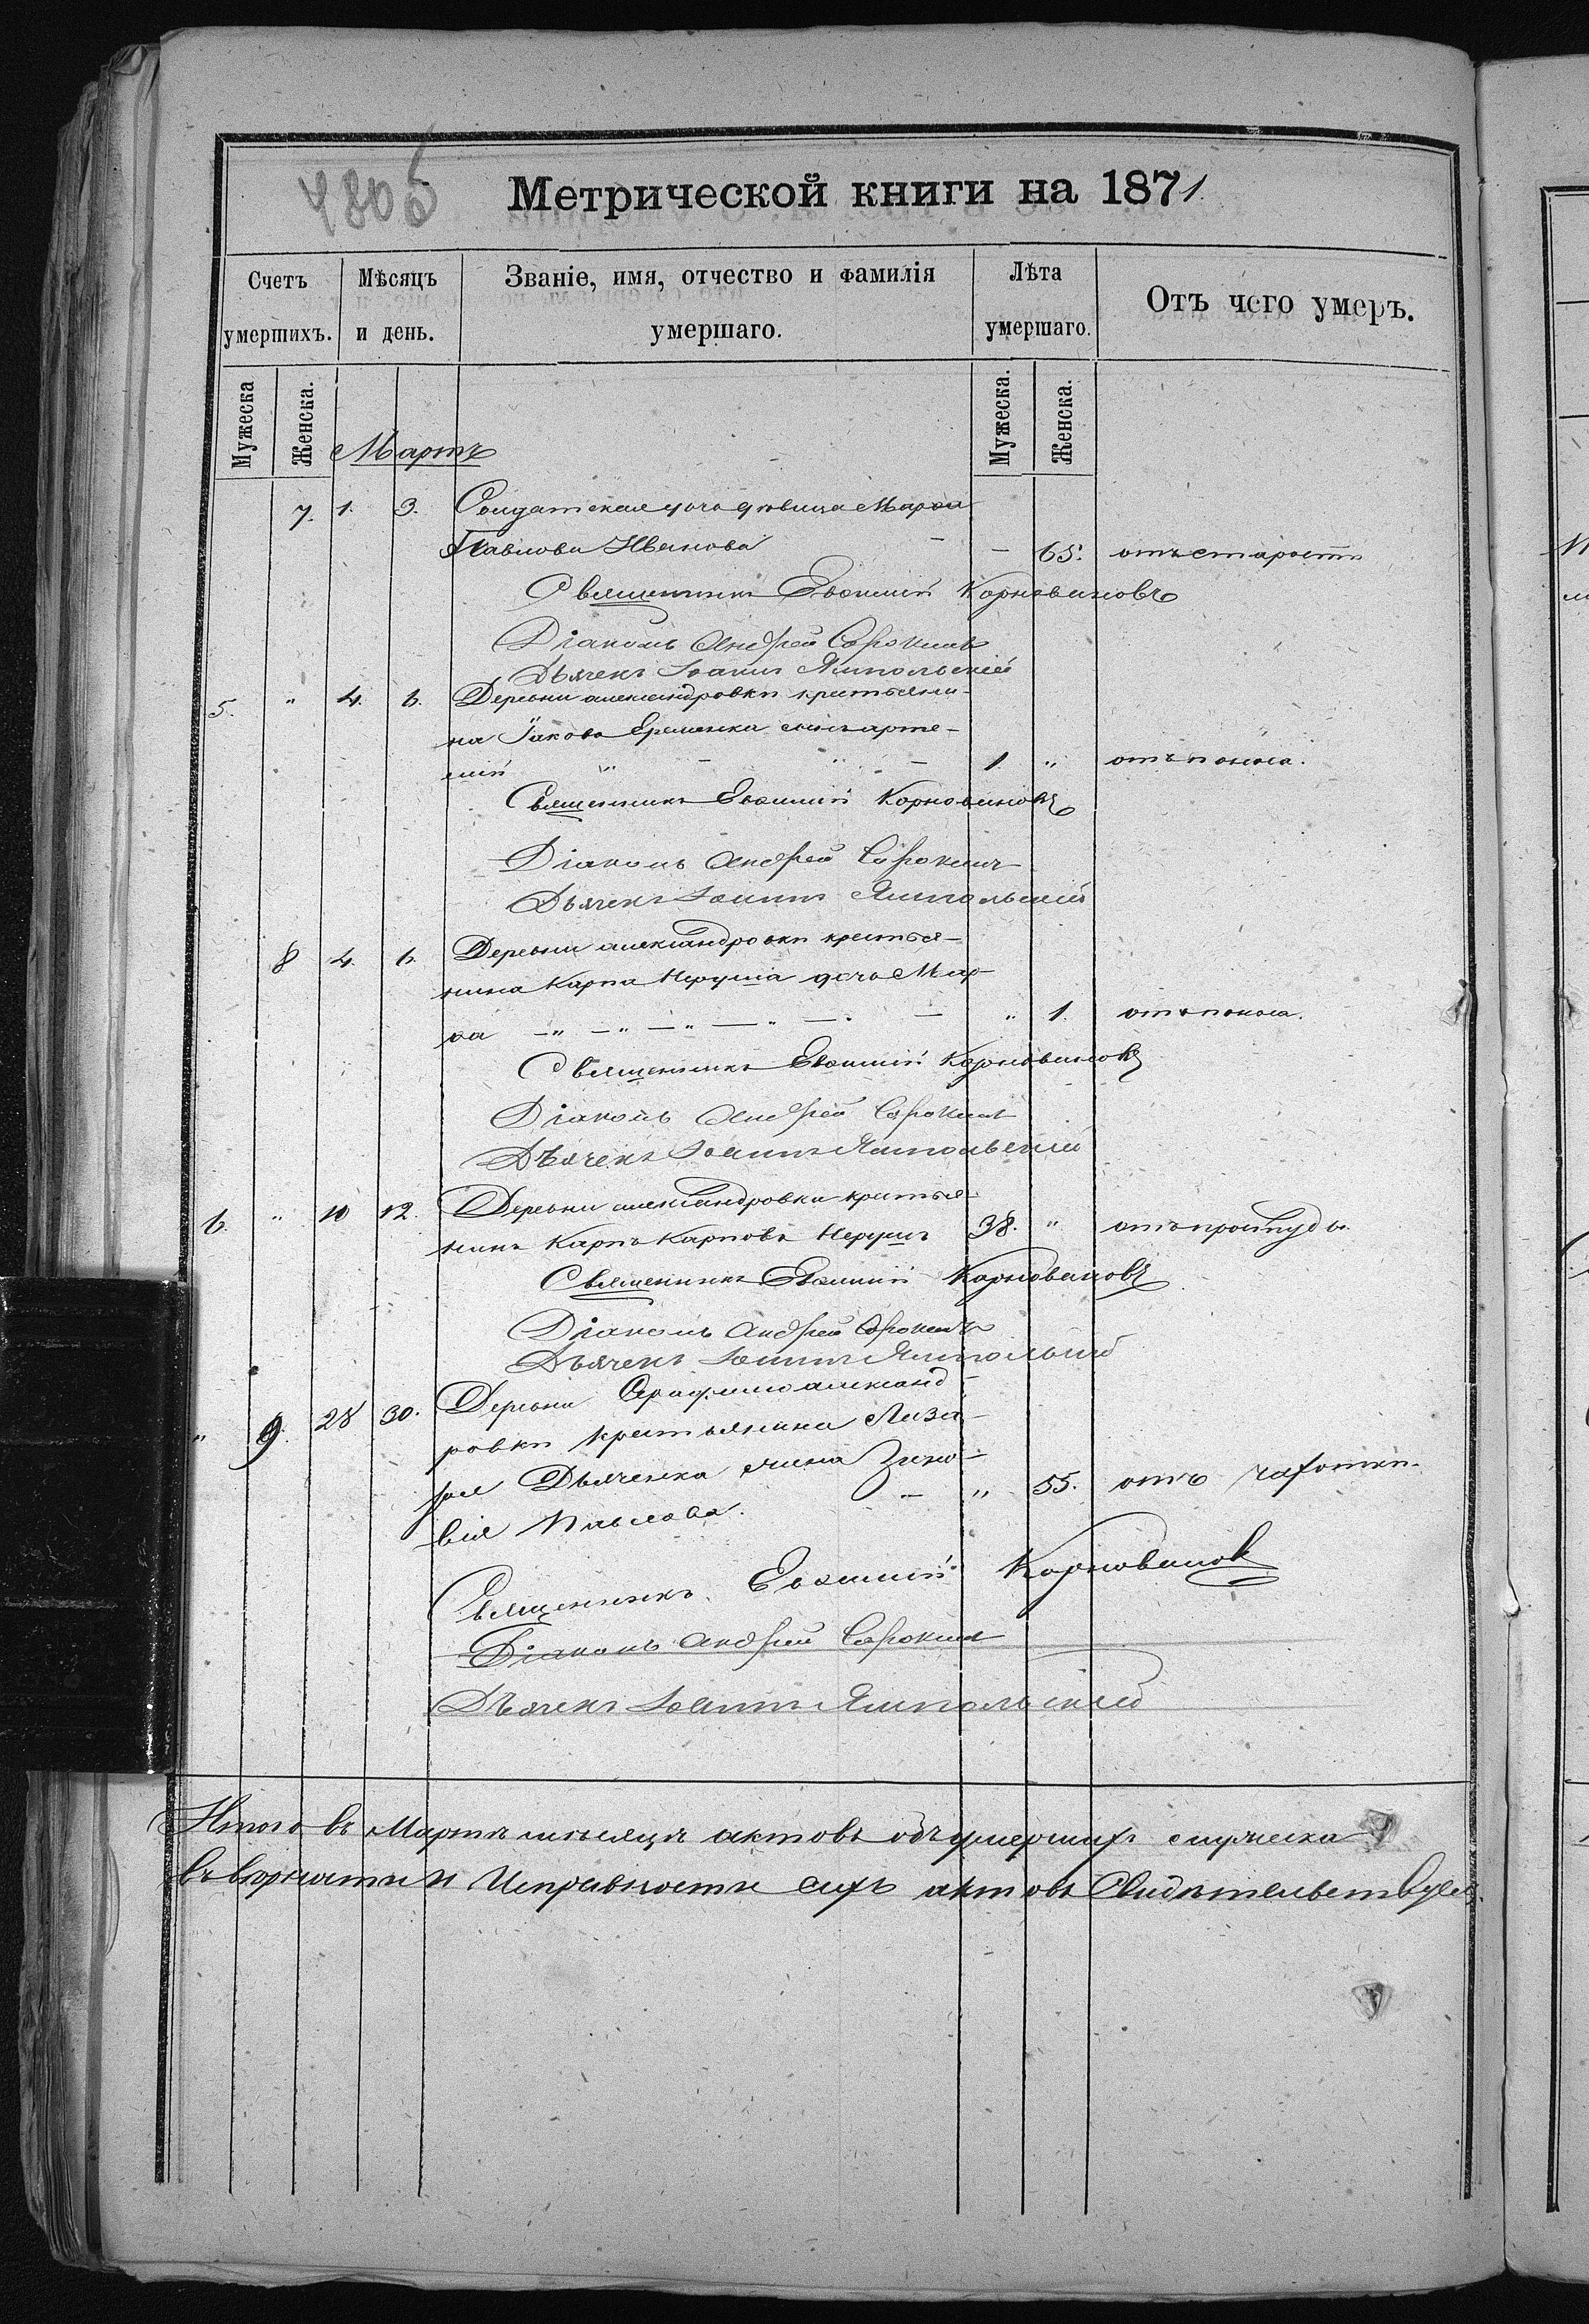 480б
Метрической книги на 1871.
Счетъ умершихъ.
Мѣсяцъ и день.
Званіе, имя, отчество и фамилія умершаго.
Лѣта умершаго.
Отъ чего умеръ.
Мужеска
Женска.
Мужеска.
Женска.
Мартъ
7. 1. 3. Солдатская дочь девица Марѳа
Павлова Иванова - - 65. отъ старости
Священникъ Евѳимій Корновановъ
Діаконъ Андрей Сорокинъ
Дьячекъ Іоаннъ Ямпольскій
5. " 4. 6. Деревни александровки крестьяни-
на Іакова Еременка сынъ арте-
мій " - " - 1. " отъ поноса.
Священникъ Евѳимій Корновановъ
Діаконъ Андрей Сорокинъ
Дьячекъ Іоаннъ Ямпольскій
8 4. 6. Деревни александровки крестья-
нина Карпа Неруша дочь Мар-
ѳа - " - " - " - " - . - " 1. отъ поноса.
Священникъ Евѳимій Корновановъ
Діаконъ Андрей Сорокинъ
Дѣячекъ Іоаннъ Ямпольскій
6. " 10 12. Деревни александровки крестья-
нинъ Карпъ Карповъ Нерушъ 38. " отъ простуды
Священникъ Евѳимій Корновановъ
Діаконъ Андрей Сорокинъ
Дьячекъ Іоаннъ Ямпольскій
" 9. 28 30. Деревни александ-
ровки крестьянина Лаза-
ря Дьяченка жена Зино-
вія Павлова. - " 55. отъ чахотки.
Священникъ Евѳимій Корновановъ
Діаконъ Андрей Сорокинъ
Дѣячекъ Іоаннъ Ямпольскій
Итого въ Мартѣ мѣсяцѣ актовъ объ умершихъ мужеска
въ вѣрности и Исправности сихъ актовъ Свидѣтельствуемъ.